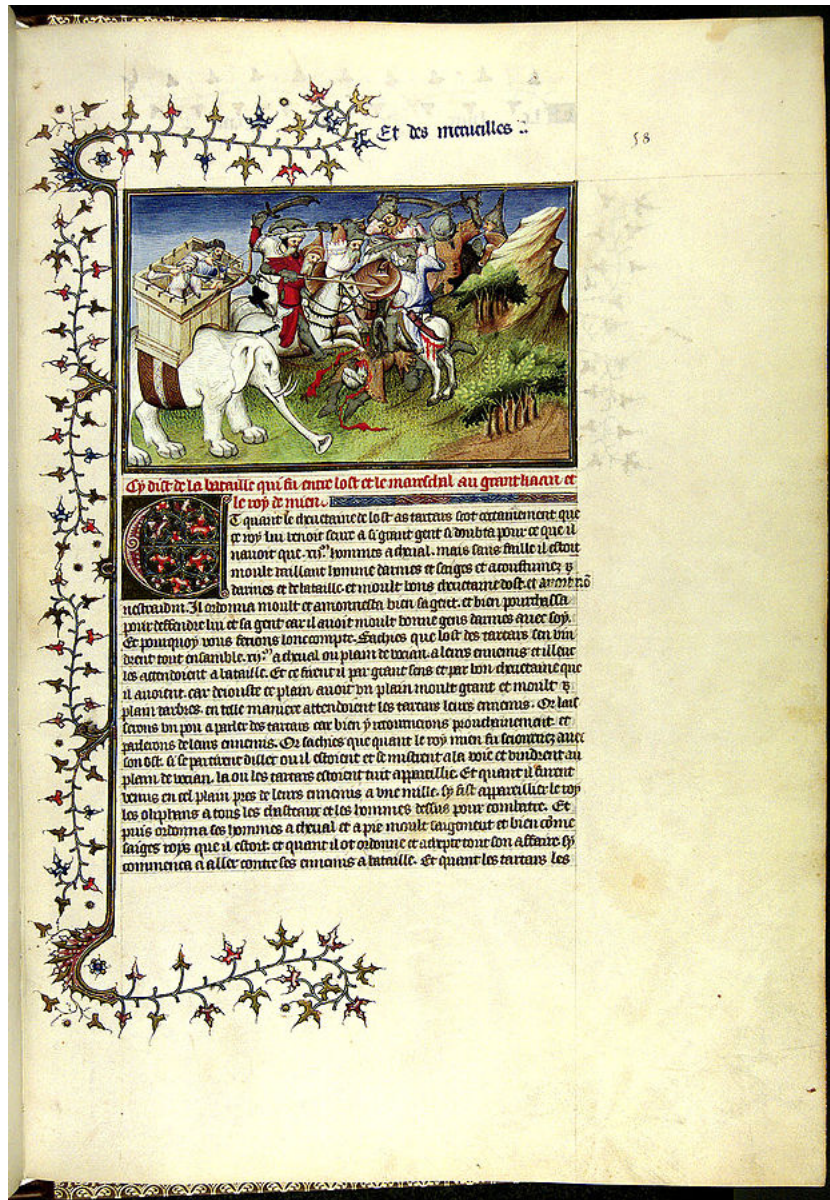 Et des merueilles
58
Cy dist de la bataille qui fu entre lost et le mareschal au grant kaan et
le roy de mien.
Et quant le cheuetaine de lost as tartars scot certainement que
ce roy lui venoit seure a si grant gent si doubta pour ce que il
nauoit que .xij.m hommes a cheual. mais sans faille il estoit
moult vaillant homme darmes et saiges et acoustumez
darmes et de bataille. et moult bons cheuetaine dost. et auoit nō
nestradin. Il ordonna moult et amonnesta bien sa gent. et bien pourchassa
pour deffendre lui et sa gent car il auoit moult bonne gens darmes auec soy.
Et pourquoy vous ferons lonc compte. Sachies que lost des tartars sen vin
drent tout ensamble .xij.m a cheual ou plain de vocian. a leurs ennemis et illeuc
les actendoient a bataille. Et ce firent il par grant sens et par bon cheuetaine que
il auoient. car deiouste ce plain auoit vn plain moult grant et moult
plain darbres. en telle maniere attendoient les tartars leurs ennemis. Or lais
serons vn pou a parler des tartars car bien y retournerons prouchainement. et
parlerons de leurs ennemis. Or sachies que quant le roy mien fu auec
son ost. si se partirent dillec ou il estoient et se misrent a la voie et vindrent au
plain de vocian. la ou les tartars estoient tuit appareillie. Et quant il furent
venus en cel plain pres de leurs ennemis a vne mille. sy fist appareillier le roy
les oliphans a tous les chasteaux et les hommes dessus pour combatre. Et
puis ordonna ses hommes a cheual et a pie moult saigement et bien cōme
saiges roys que il estoit. et quant il ot ordonne et tout son affaire. sy
commenca a aller contre ses ennemis a bataille. Et quant les tartars les